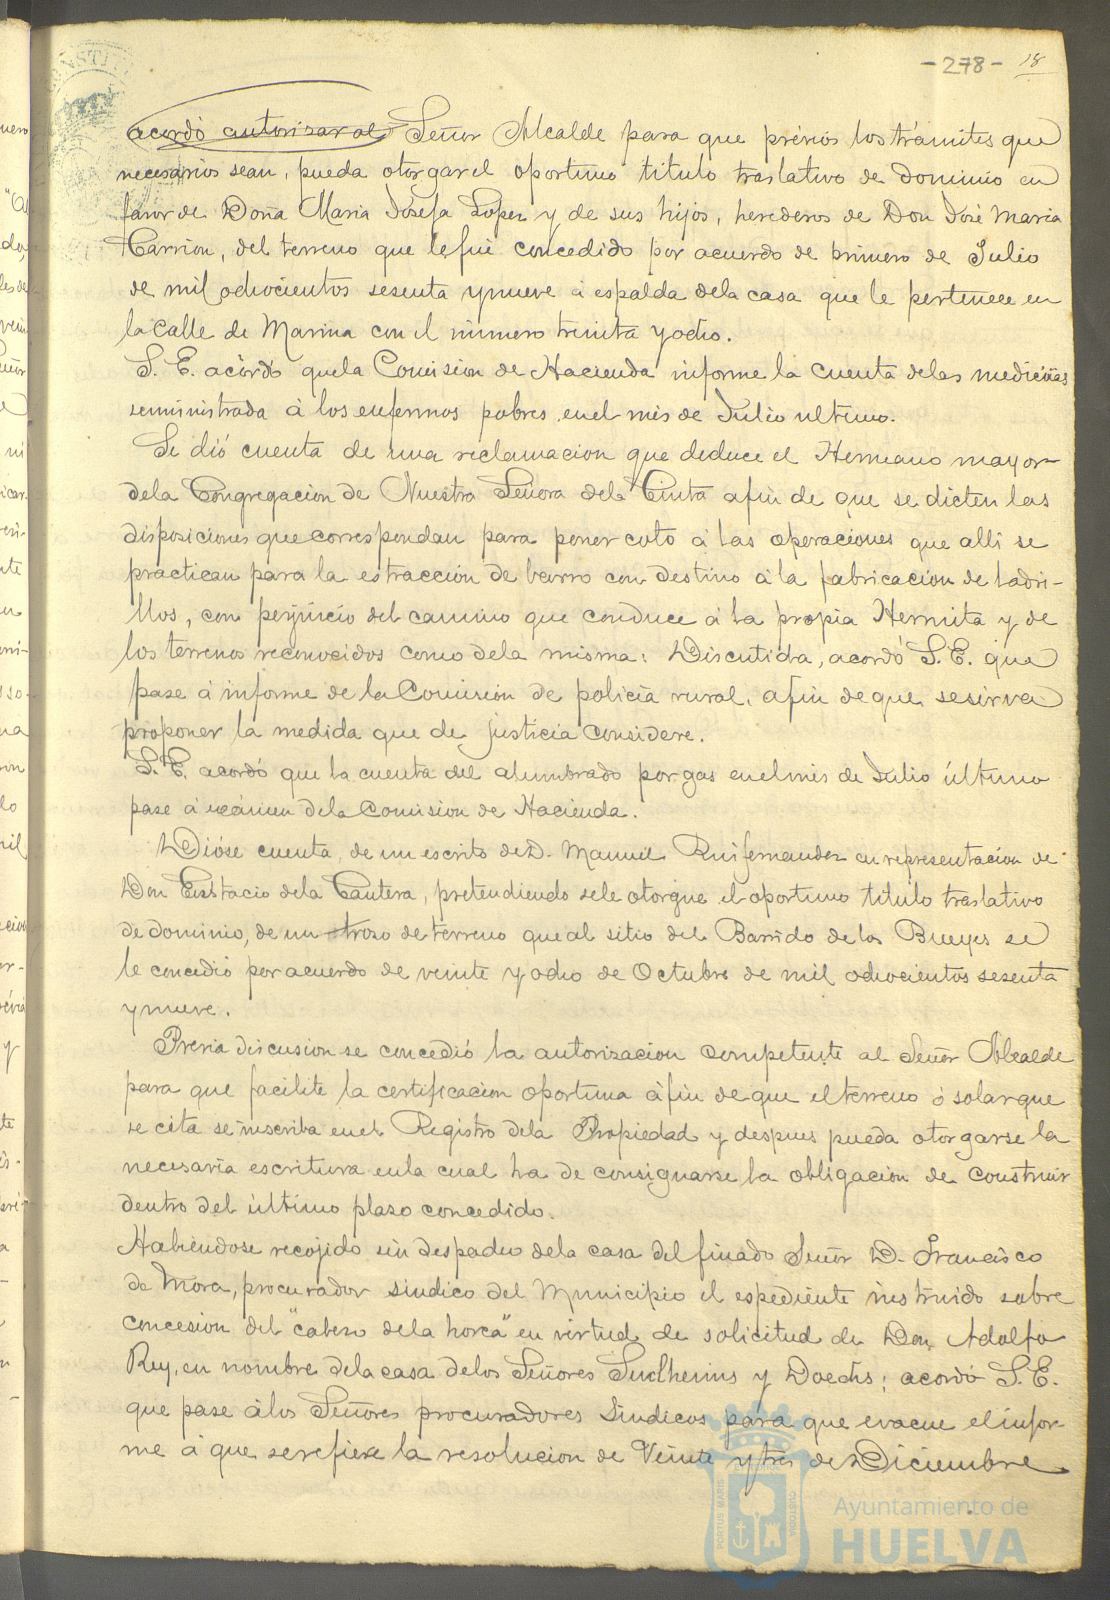 - 278 - 18
acordó autorizar al Señor Alcalde para que prévios los trámites que
necesarios sean, pueda otorgar el oportuno titulo traslativo de dominio en
favor de Doña Maria Josefa Lopez y de sus hijos, herederos de Don José Maria
Carrion, del terreno que le fué concedido por acuerdo de primero de Julio
de mil ochocientos sesenta y nueve á espalda de la casa que le pertenece en
la calle de Marina con el número treinta y ocho.
S. E. acordó que la Comision de Hacienda informe la cuenta de las medicinas
seministrada á los enfermos pobres en el mes de Julio ultimo.
Se dió cuenta de una reclamacion que deduce el Hermano mayor
de la Congregacion de Nuestra Señora de la Cinta afin de que se dicten las
disposiciones que correspondan para poner coto á las operaciones que alli se
practican para la estracción de barro con destino á la fabricacion de ladri-
llos, con perjuicio del camino que conduce á la propia Hermita y de
los terrenos reconocidos como de la misma: Discutida, acordó S. E. que
pase á informe de la Comision de policia rural, afin de que se sirva
proponer la medida que de justicia considere.
S. E. acordó que la cuenta del alumbrado por gas en el mes de Julio último
pase á exámen de la Comision de Hacienda.
Dióse cuenta, de un escrito de D. Manuel Ruifernandez en representacion de
Don Eustacio de la Cantera, pretendiendo se le otorgue el oportuno titulo traslativo
de dominio, de un troso de terreno que al sitio del Barrido de los Bueyes se
le concedió por acuerdo de veinte y ocho de Octubre de mil ochocientos sesenta
y nueve.
Prévia discusion se concedió la autorizacion competente al Señor Alcalde
para que facilite la certificacion oportuna á fin de que el terreno ó solar que
se cita se inscriba en el Registro de la Propiedad y despues pueda otorgarse la
necesaria escritura en la cual ha de consignarse la obligacion de construir
dentro del último plaso concedido.
Habiéndose recojido sin despacho de la casa del finado Señor D. Francisco
de Mora, procurador Sindico del Municipio el espediente instruido sobre
concesion del "cabeso de la horca" en virtud de solicitud de Don Adolfo
Rey, en nombre de la casa de los Señores Sundheims y Doechs; acordó S. E.
que pase á los Señores procuradores Sindicos para que evacue el infor-
me á que se refiere la resolucion de Veinte y tres de Diciembre
PORTUS MARIS CUSTODIA
Ayuntamiento de
HUELVA